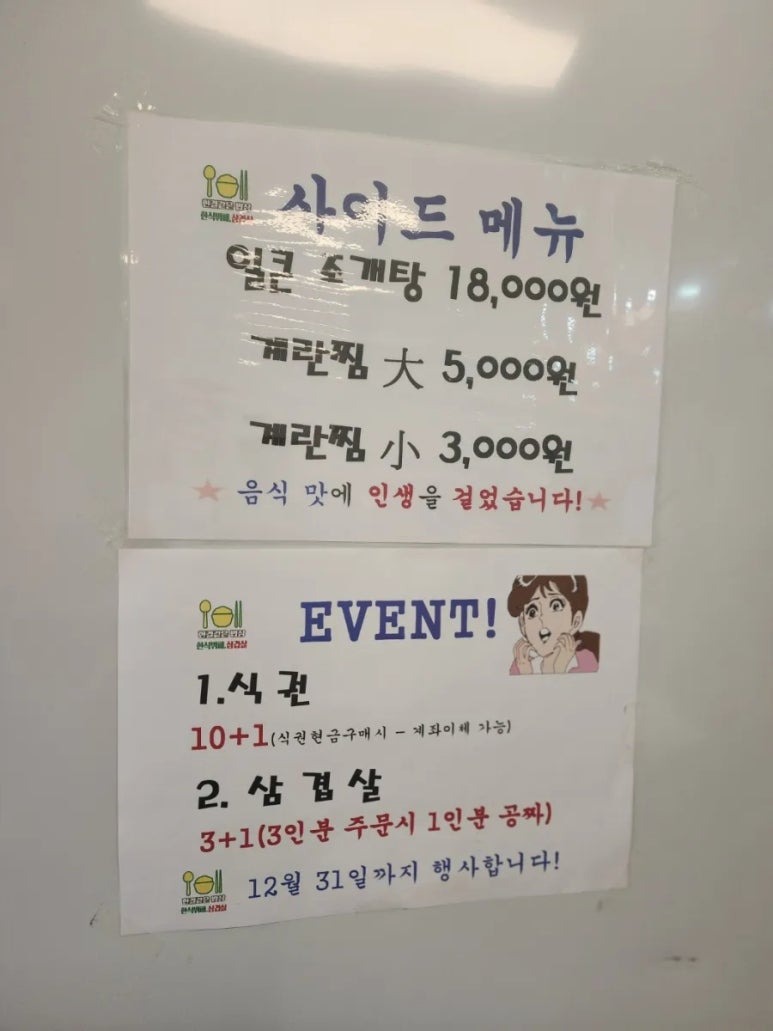 사이드 메뉴
얼큰 조개탕 18,000원
계란찜 大 5,000원
계란찜 小 3,000원
음식 맛에 인생을 걸었습니다!
한식뷔페, 삼겹살
EVENT!
1.식 권
10+1(식권현금구매시 – 계좌이체 가능)
2. 삼 겹 살
3+1(3인분 주문시 1인분 공짜)
한식뷔페, 삼겹살
12월 31일까지 행사합니다!
한식뷔페, 삼겹살